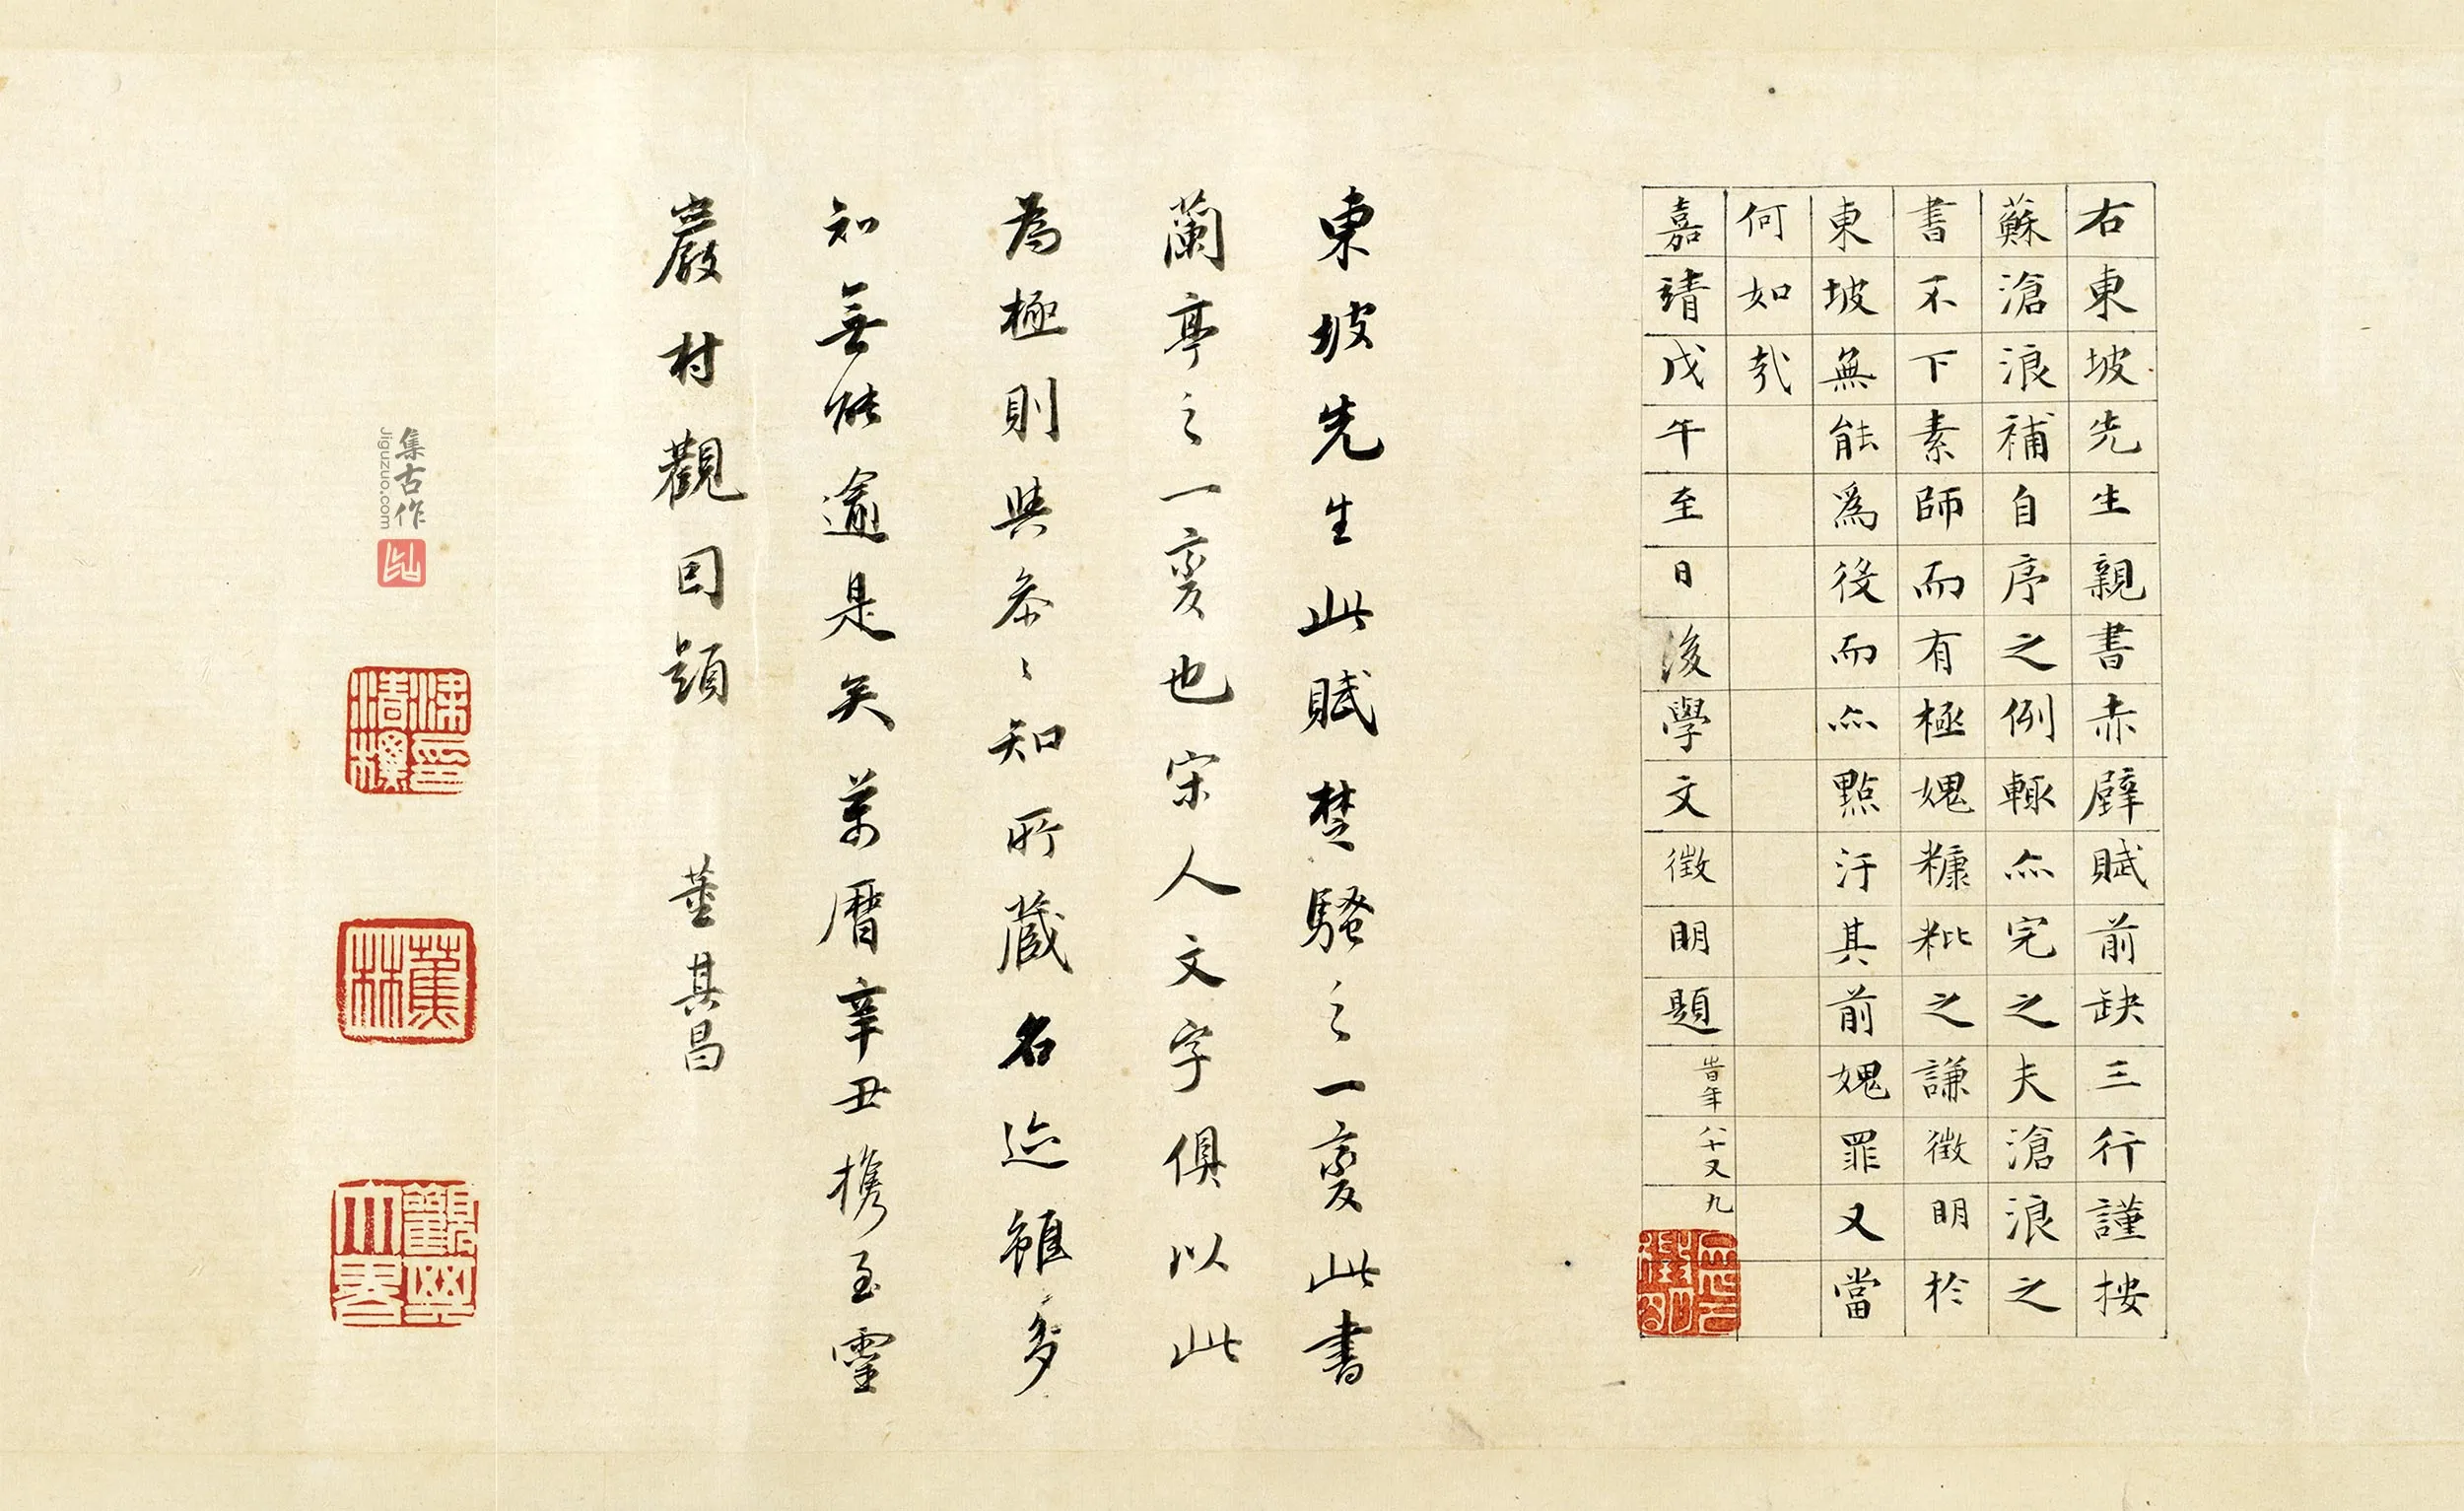 右東坡先生親書赤壁賦前缺三行謹按
蘇滄浪補自序之例輒亦完之夫滄浪之
書不下素師而有極媿糠粃之謙徵明於
東坡無能為役而亦點汙其前媿罪又當
何如哉
嘉靖戊午至日後學文徵明題時年八十又九
東坡先生此賦楚騷之一變此書
蘭亭之一變也宋人文字俱以此
為極則與參參知所藏名迹雖多
知無能逾是矣萬曆辛丑攜至靈
巖村觀因題 董其昌
集古作
jiguzuo.com
蕉林
觀其大略